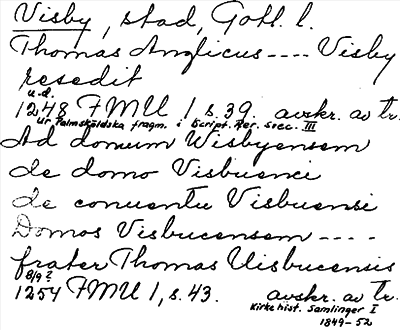 Visby, stad, Gotl. l.
Thomas Anglicus ---- Visby
resedit
u.d.
1248 FMU 1 s. 39. avskr. av tr.
ur Palmsköldska fragm. i Script. Rer. Svec. III
Ad domum Wisbyensem
de domo Visbuenci
de conuentu Visbuensi
Domos Visbucensem ----
frater Thomas Uisbucensis
8/9?
1254 FMU 1, s. 43. avskr. av tr.
Kirkehist. Samlinger I
1849-52